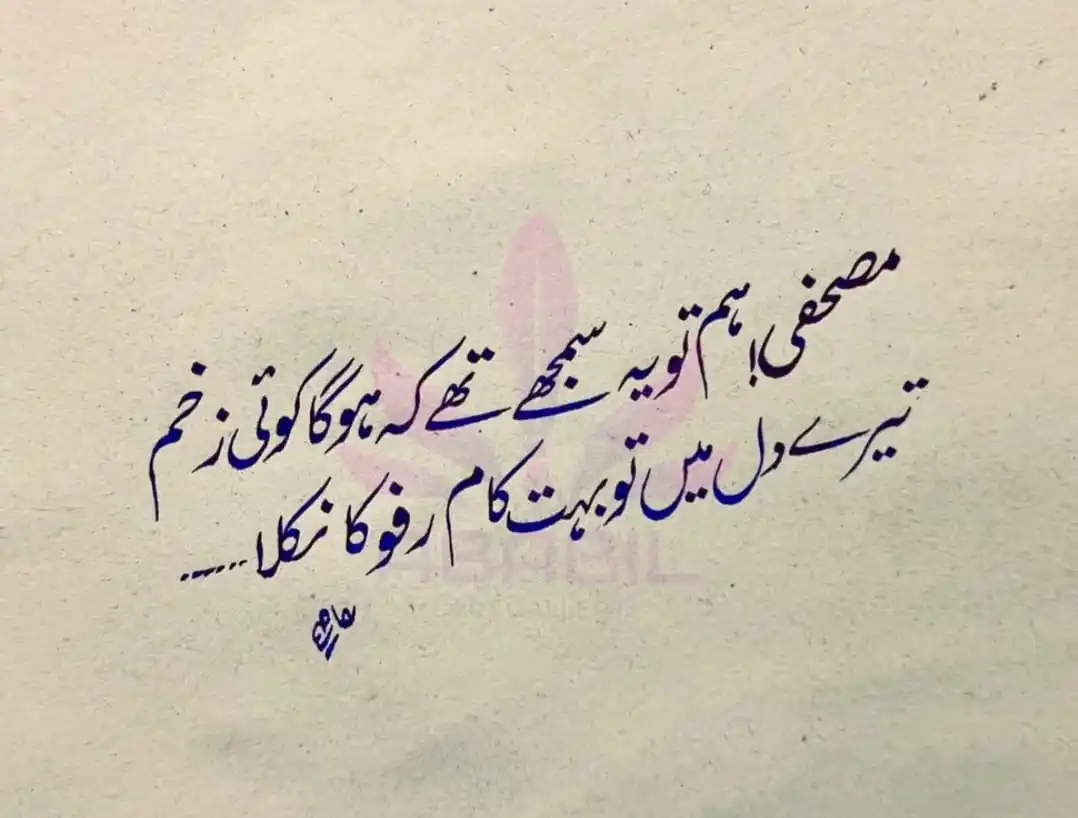 مصحفی! ہم تو یہ سمجھے تھے کہ ہوگا کوئی زخم
تیرے دل میں تو بہت کام رفو کا نکلا......
ABABIL